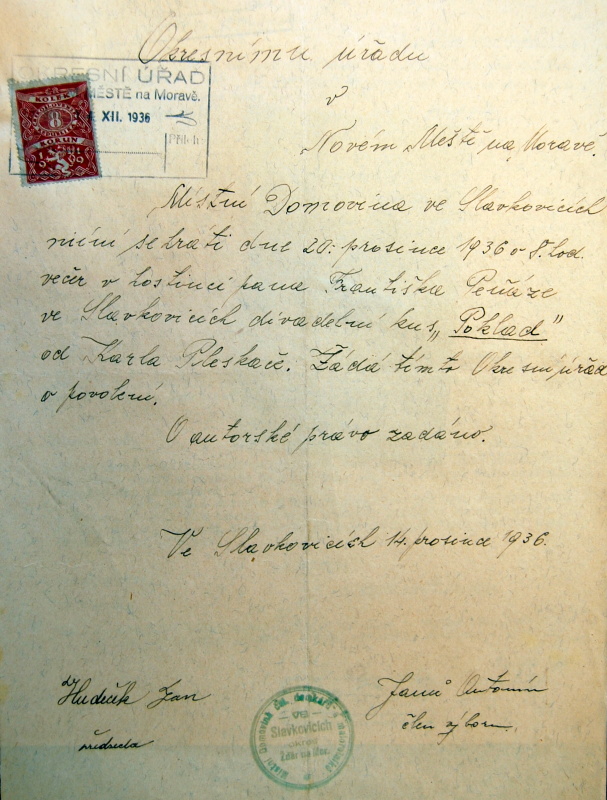 Okresnímu úřadu
v
Novém Městě na Moravě.
OKRESNÍ ÚŘAD
MĚSTĚ na Moravě.
XII. 1936
Příloh
KOLEK
8
KORUN
Místní Domovina ve Slavkovicích
míní sehrati dne 20. prosince 1936 o 8. hod.
večer v hostinci pana Františka Peňáze
ve Slavkovicích divadební kus „Poklad"
od Karla Pleskače. Žádá tímto Okresní úřad
o povolení.
O autorské právo zadáno.
Ve Slavkovicích 14. prosince 1936.
Jan
předseda
Janů Antonín
člen výboru.
Místní Domovina čsl. domkařů a malorolníků
ve
Slavkovicích
okres
Žďár na Mor.